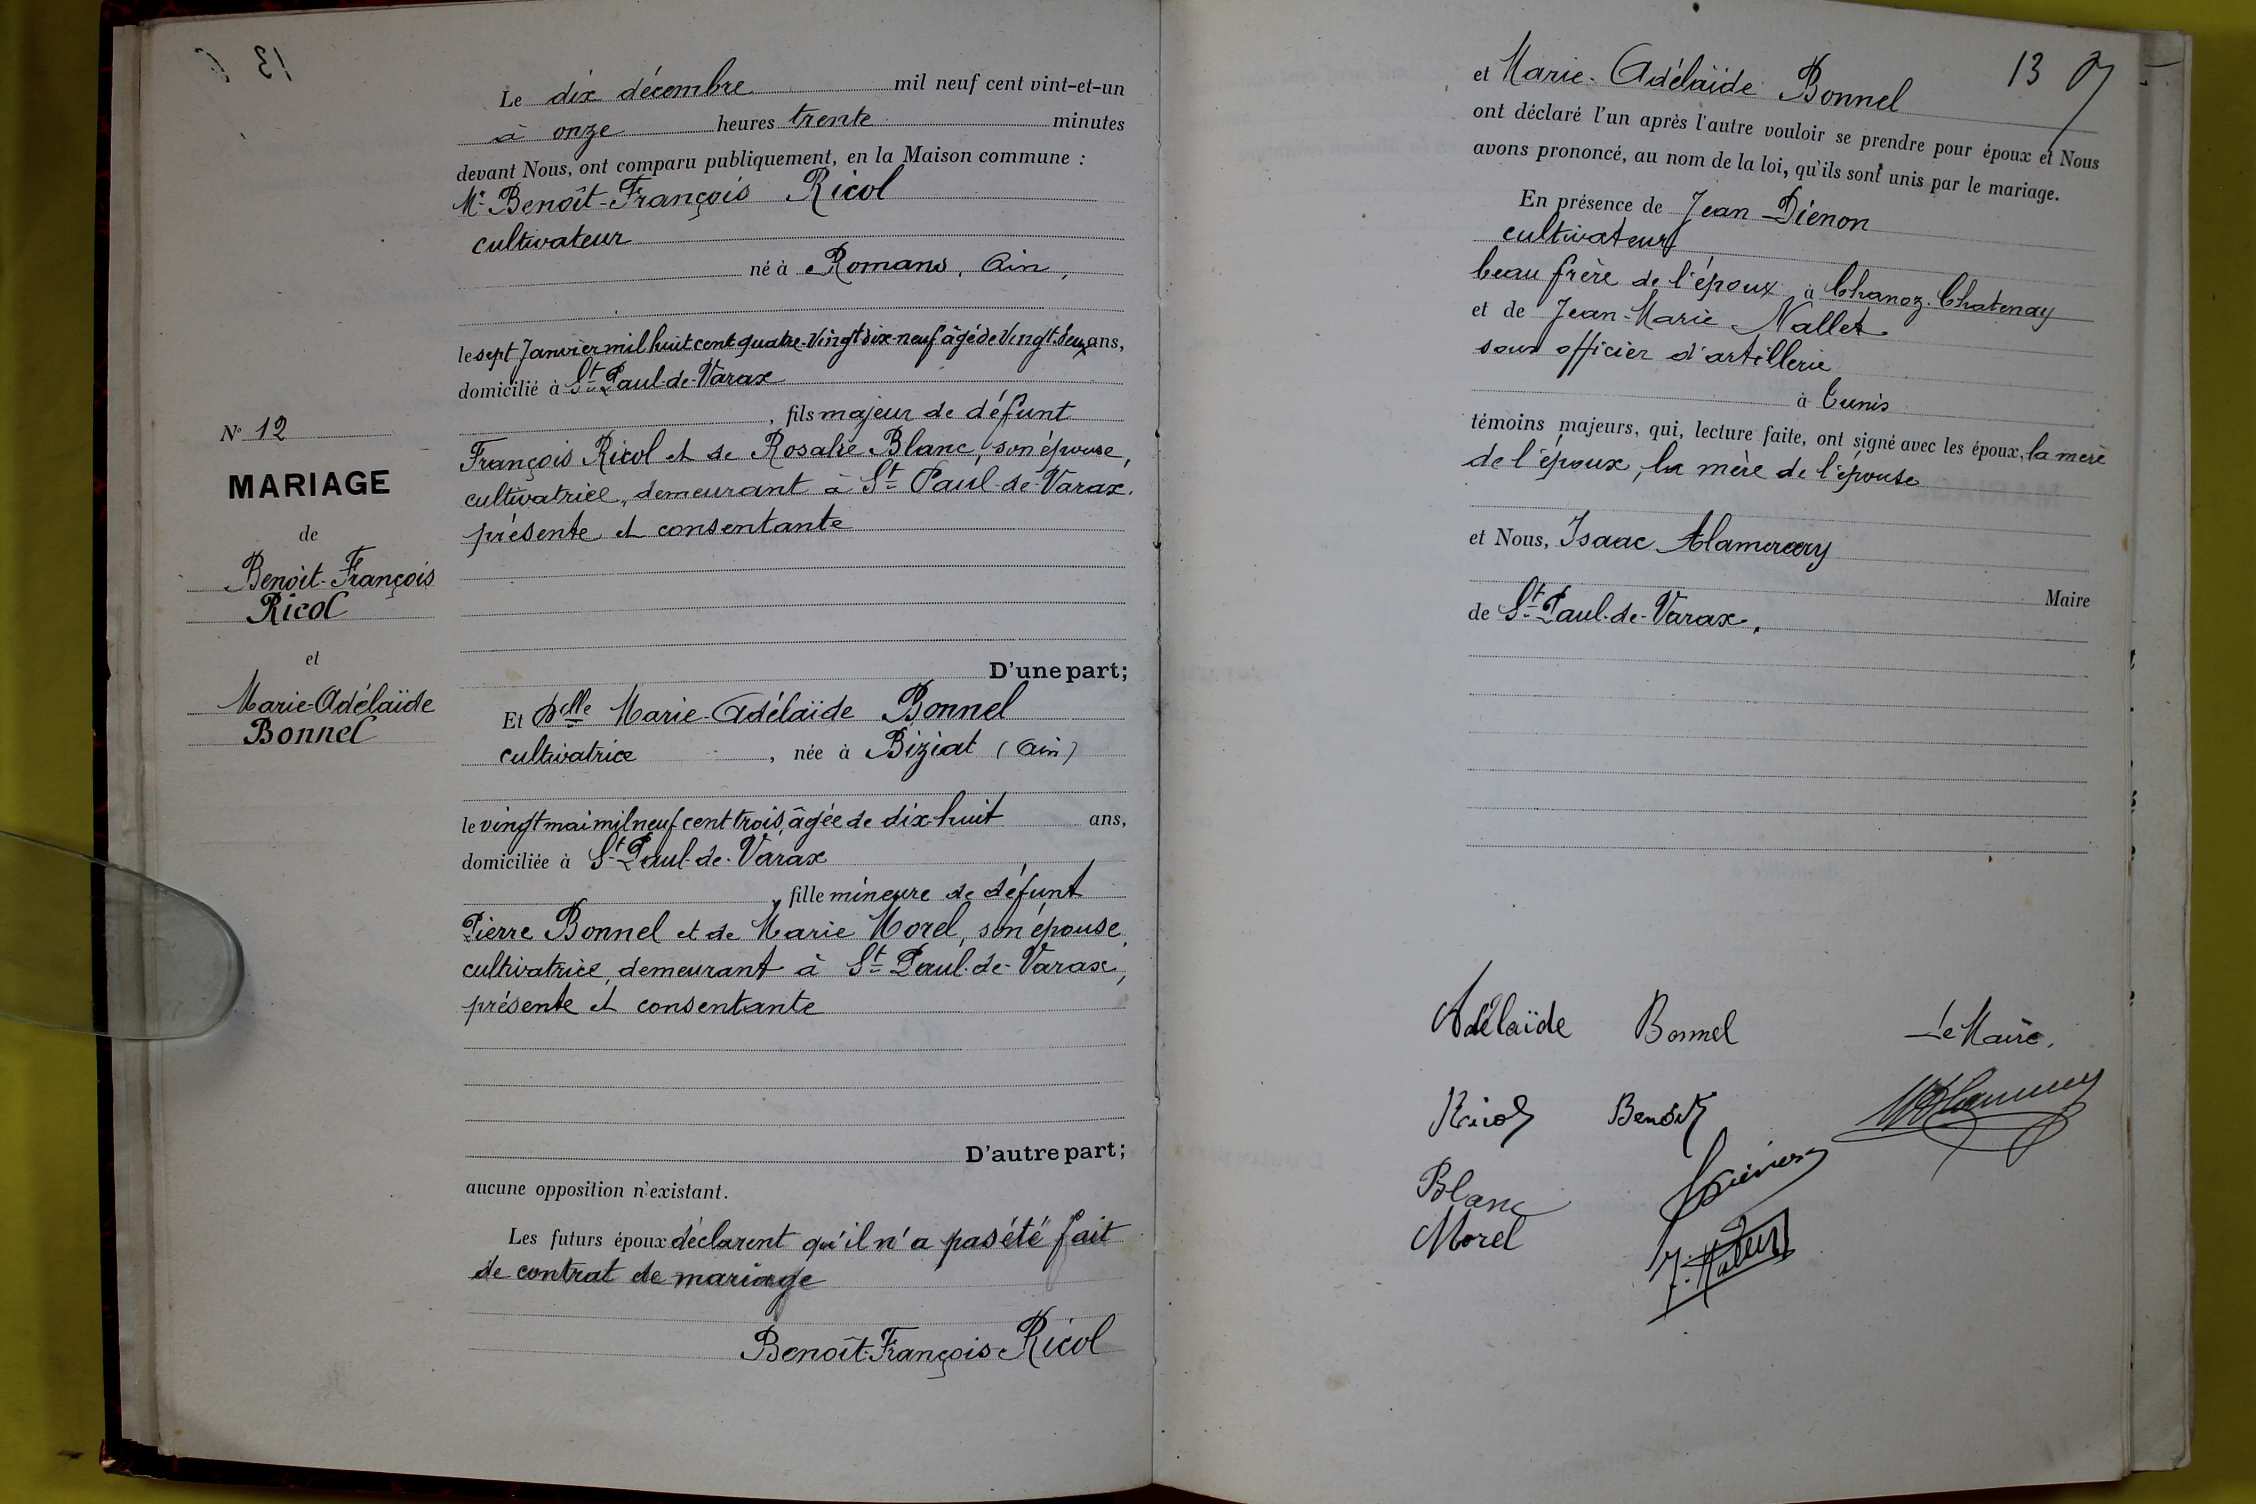 Le dix décembre mil neuf cent vint-et-un
à onze heures trente minutes
devant Nous, ont comparu publiquement, en la Maison commune :
Mr Benoît-François Ricol
cultivateur
né à Romans, Ain,
le sept Janvier mil huit cent quatre-vingt-dix-neuf âgé de Vingt-deux ans,
domicilié à St Paul-de-Varax
, fils majeur de défunt
François Ricol et de Rosalie Blanc, son épouse,
cultivatrice, demeurant à St Paul-de-Varax.
présente et consentante
D'une part;
Et Delle Marie-Adélaïde Bonnel
cultivatrice, née à Biziat (Ain)
le vingt mai mil neuf cent trois, âgée de dix-huit ans,
domiciliée à St Paul-de-Varax
, fille mineure de défunt
Pierre Bonnel et de Marie Morel, son épouse,
cultivatrice, demeurant à St Paul-de-Varax,
présente et consentante
D'autre part;
aucune opposition n'existant.
Les futurs époux déclarent qu'il n'a pas été fait
de contrat de mariage
Benoît-François Ricol
No 12
MARIAGE
de
Benoit-François
Ricol
et
Marie-Adélaïde
Bonnel
13
et Marie-Adélaïde Bonnel
ont déclaré l'un après l'autre vouloir se prendre pour époux et Nous
avons prononcé, au nom de la loi, qu'ils sont unis par le mariage.
En présence de Jean Diénon
cultivateur
beau frère de l'époux à Chanoz-Chatenay
et de Jean-Marie Nallet
sous officier d'artillerie
à Tunis
témoins majeurs, qui, lecture faite, ont signé avec les époux, la mère
de l'époux, la mère de l'épouse
et Nous, Isaac Alamercery
Maire
de St Paul-de-Varax.
Adélaïde Bonnel
Le Maire,
Ricol Benoit
Blanc
Morel